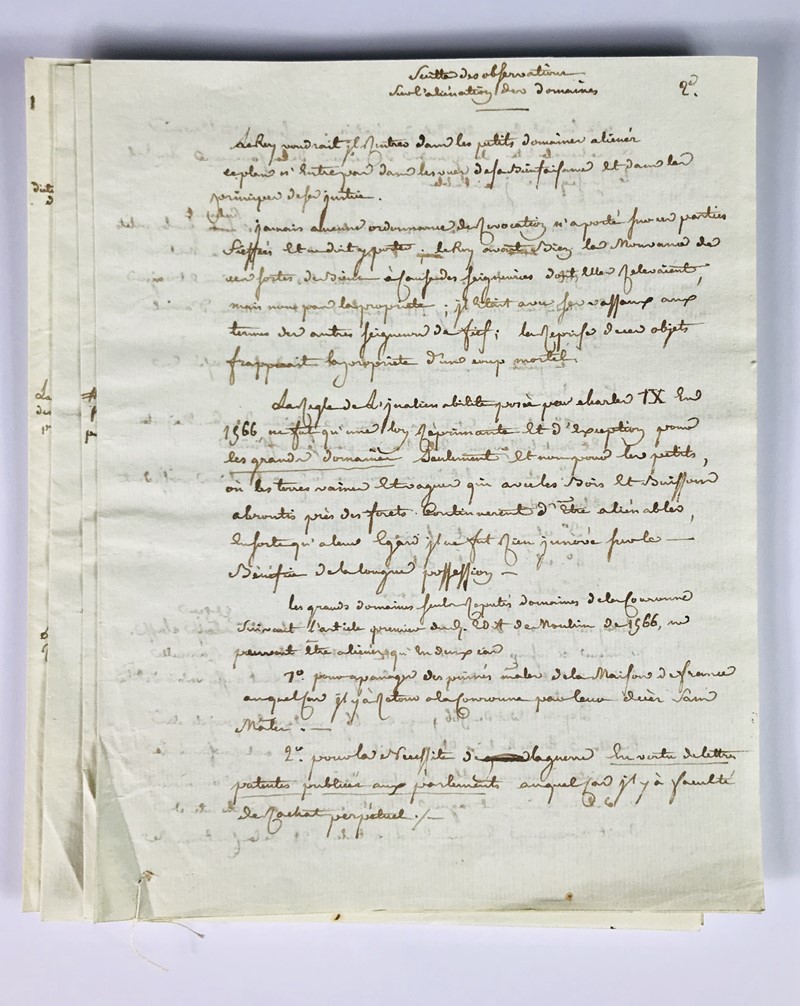 Suitte des observations
Sur l'alienation des domaines
2e.
Le Roy voudrait jl Rentrer dans les petits domaines aliénés
ce plan n'Entre pas dans les vues de sa Bienfaisance Et dans les
principes de sa justice.
jamais aucune ordonnance de Revocation n'a porté sur ces parties
fieffées Et le Roy avait Bien la Mouvance de
ces sortes de Biens à Cause des seigneuries dont Elles Relevaient,
mais non pas la propriete ; jl Etait avec ses vassaux aux
termes des autres seigneurs de fief ; la Reprise de ces objets
frapperait la propriete d'un coup mortel.
La Regle de L'jnalienabilité posée par charles IX En
1566, ne fut qu'une loy Réprimante Et d'Exception pour
les grands domaines Seulement Et non pour les petits,
où les terres vaines Et vagues qui avec les Bois Et Buissons
abroutis près des forets Continuerent d'Etre alienables,
En sorte qu'a leur Egard jl ne fut Rien jnnové sur le —
Bénéfice de la longue possession —
les grands domaines seuls Reputés domaines de la Couronne
Suivant l'article premier du d. Edit de Moulins de 1566, ne
peuvent Etre aliénés qu'En deux cas
1o. pour apanager des puinés males de la Maison de france
auquel Cas jl y à Retour a la Couronne par leur décès Sans
Males. —
2o. pour la Necessité de la guerre En vertu de lettres
patentes publiées aux parlements auquel Cas jl y à faculté
de Rachat perpétuel ./—